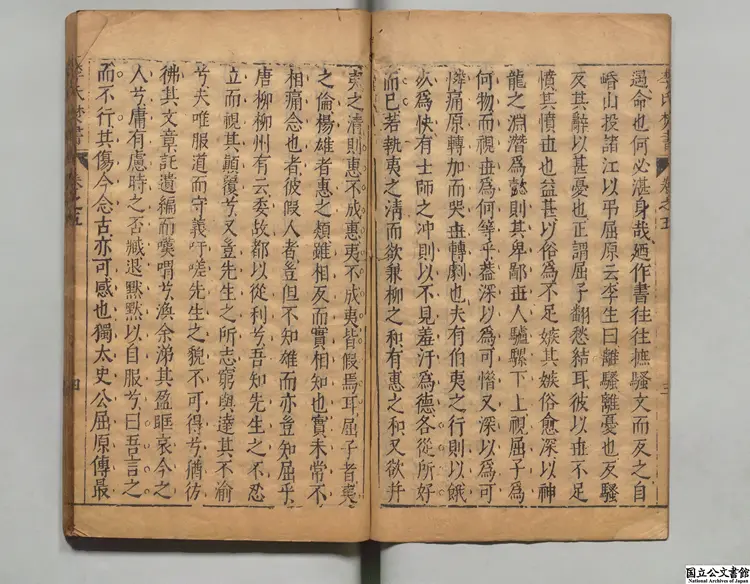 遇命也何必湛身哉廼作書往往摭騷文而反之自
岷山投諸江以弔屈原云李生曰離騷離憂也反騷
反其辭以甚憂也正謂屈子翻愁結耳彼以世不足
憤其憤世也益甚以俗為不足嫉其嫉俗愈深以神
龍之淵潛為懿則其卑鄙世人驢騾下上視屈子為
何物而視世為何等乎蓋深以為可惜又深以為可
憐痛原轉加而哭世轉劇也夫有伯夷之行則以餓
死為快有士師之冲則以不見羞汙為德各從所好
而已若執夷之清而欲兼柳之和有惠之和又欲并
夷之清則惠不成惠夷不成夷皆假焉耳屈子者夷
之倫楊雄者惠之類雖相反而實相知也實未常不
相痛念也者彼假人者豈但不知雄而亦豈知屈乎
唐柳柳州有云委故都以從利兮吾知先生之不忍
立而視其顛覆兮又豈先生之所志窮與達其不渝
兮夫唯服道而守義吁嗟先生之貌不可得兮猶彷
彿其文章託遺編而嘆喟兮渙余涕其盈眶哀今之
人兮庸有慮時之否臧退默默以自服兮曰吾言之
而不行其傷今念古亦可感也獨太史公屈原傳最
李氏焚書
卷之五
三
李氏焚書
卷之五
四
国立公文書館
National Archives of Japan